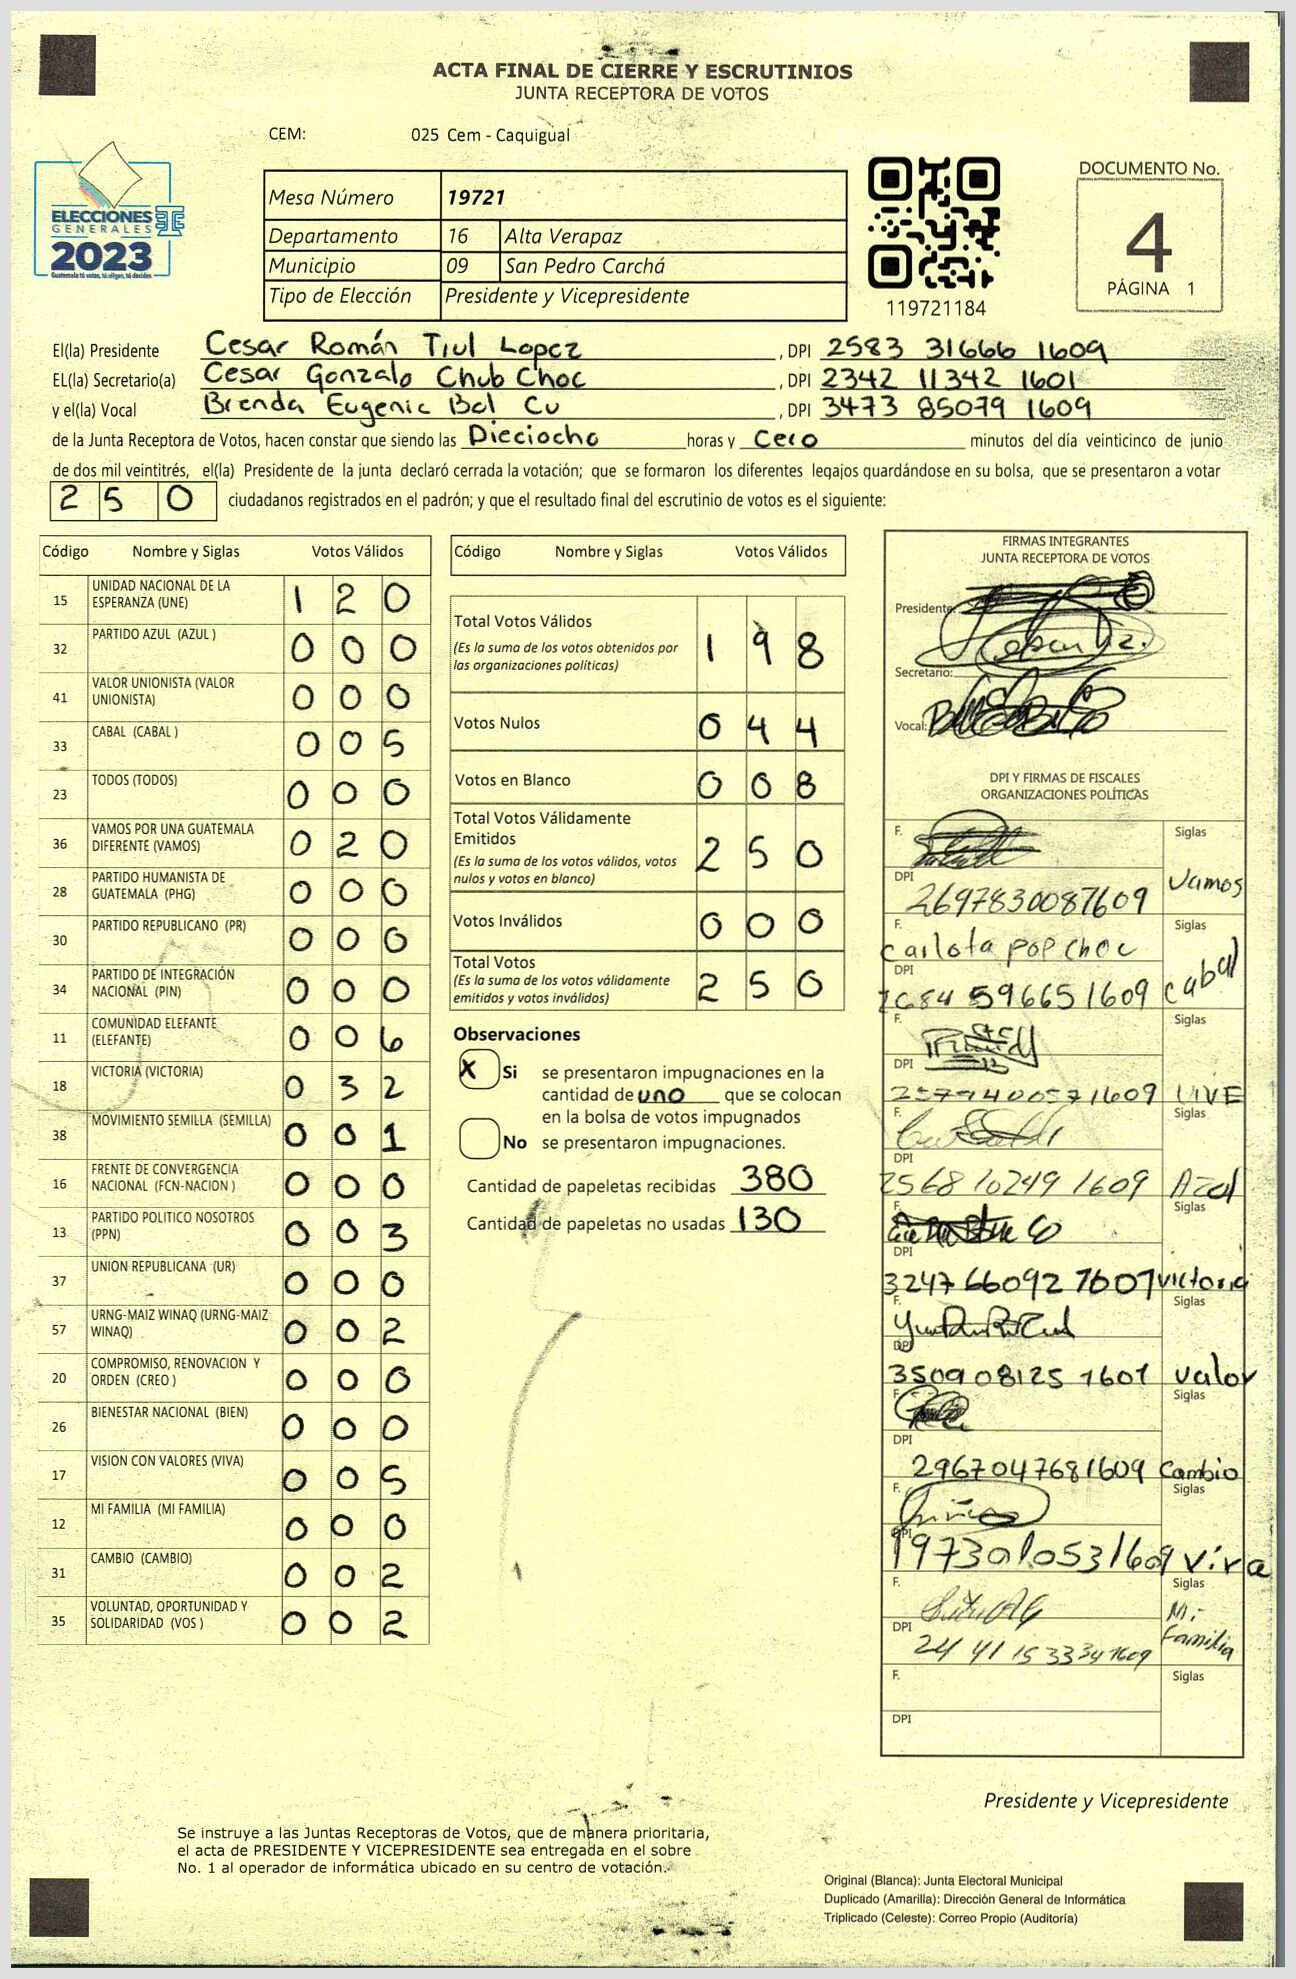 ACTA FINAL DE CIERRE Y ESCRUTINIOS
JUNTA RECEPTORA DE VOTOS
CEM: 025 Cem - Caquigual
ELECCIONES
GENERALES
2023
Guatemala tú votas, tú eliges, tú decides
Mesa Número 19721
Departamento 16 Alta Verapaz
Municipio 09 San Pedro Carchá
Tipo de Elección Presidente y Vicepresidente
119721184
DOCUMENTO No.
4
PÁGINA 1
El(la) Presidente Cesar Román Tiul Lopez , DPI 2583 31666 1609
EL(la) Secretario(a) Cesar Gonzalo Chub Choc , DPI 2342 11342 1601
y el(la) Vocal Brenda Eugenia Bol Cu , DPI 3473 85079 1609
de la Junta Receptora de Votos, hacen constar que siendo las Dieciocho horas y Cero minutos del día veinticinco de junio
de dos mil veintitrés, el(la) Presidente de la junta declaró cerrada la votación; que se formaron los diferentes legajos guardándose en su bolsa, que se presentaron a votar
250 ciudadanos registrados en el padrón; y que el resultado final del escrutinio de votos es el siguiente:
Código Nombre y Siglas Votos Válidos
15 UNIDAD NACIONAL DE LA ESPERANZA (UNE) 1 2 0
32 PARTIDO AZUL (AZUL ) 0 0 0
41 VALOR UNIONISTA (VALOR UNIONISTA) 0 0 0
33 CABAL (CABAL ) 0 0 5
23 TODOS (TODOS) 0 0 0
36 VAMOS POR UNA GUATEMALA DIFERENTE (VAMOS) 0 2 0
28 PARTIDO HUMANISTA DE GUATEMALA (PHG) 0 0 0
30 PARTIDO REPUBLICANO (PR) 0 0 0
34 PARTIDO DE INTEGRACIÓN NACIONAL (PIN) 0 0 0
11 COMUNIDAD ELEFANTE (ELEFANTE) 0 0 6
18 VICTORIA (VICTORIA) 0 3 2
38 MOVIMIENTO SEMILLA (SEMILLA) 0 0 1
16 FRENTE DE CONVERGENCIA NACIONAL (FCN-NACION ) 0 0 0
13 PARTIDO POLITICO NOSOTROS (PPN) 0 0 3
37 UNION REPUBLICANA (UR) 0 0 0
57 URNG-MAIZ WINAQ (URNG-MAIZ WINAQ) 0 0 2
20 COMPROMISO, RENOVACION Y ORDEN (CREO ) 0 0 0
26 BIENESTAR NACIONAL (BIEN) 0 0 0
17 VISION CON VALORES (VIVA) 0 0 5
12 MI FAMILIA (MI FAMILIA) 0 0 0
31 CAMBIO (CAMBIO) 0 0 2
35 VOLUNTAD, OPORTUNIDAD Y SOLIDARIDAD (VOS ) 0 0 2
Código Nombre y Siglas Votos Válidos
Total Votos Válidos 1 9 8
(Es la suma de los votos obtenidos por
las organizaciones políticas)
Votos Nulos 0 4 4
Votos en Blanco 0 0 8
Total Votos Válidamente
Emitidos 2 5 0
(Es la suma de los votos válidos, votos
nulos y votos en blanco)
Votos Inválidos 0 0 0
Total Votos 2 5 0
(Es la suma de los votos válidamente
emitidos y votos inválidos)
Observaciones
X Si se presentaron impugnaciones en la
cantidad de uno que se colocan
en la bolsa de votos impugnados
No se presentaron impugnaciones.
Cantidad de papeletas recibidas 380
Cantidad de papeletas no usadas 130
FIRMAS INTEGRANTES
JUNTA RECEPTORA DE VOTOS
Presidente:
Secretario:
Vocal:
DPI Y FIRMAS DE FISCALES
ORGANIZACIONES POLÍTICAS
F. Siglas
DPI 2697830087609 Vamos
F. Carlota pop choc Siglas
DPI 2684 59665 1609 Cabal
F. Siglas
DPI VIVE
F. Siglas
DPI 2568 10249 1609 Azul
F. Siglas
DPI 3247 66092 1607 victoria
F. Siglas
DPI 3509 08125 1601 valor
F. Siglas
DPI 2967047681609 Cambio
F. Siglas
DPI 1973010531609 viva
F. Siglas
DPI 2441 15333 1609 Mi-
Familia
F. Siglas
DPI
Presidente y Vicepresidente
Se instruye a las Juntas Receptoras de Votos, que de manera prioritaria,
el acta de PRESIDENTE Y VICEPRESIDENTE sea entregada en el sobre
No. 1 al operador de informática ubicado en su centro de votación.
Original (Blanca): Junta Electoral Municipal
Duplicado (Amarilla): Dirección General de Informática
Triplicado (Celeste): Correo Propio (Auditoría)